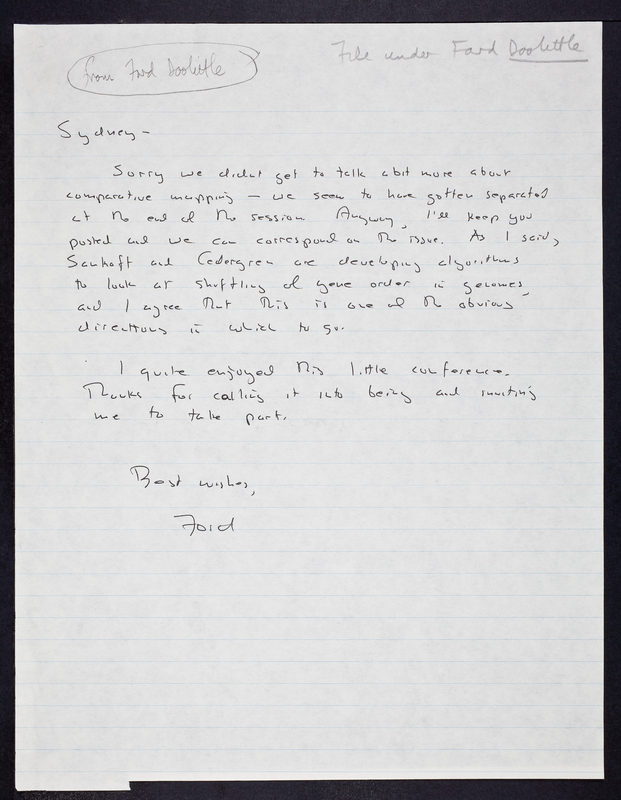 from Ford Doolittle
File under Ford Doolittle
Sydney –
Sorry we didnt get to talk a bit more about
comparative mapping – we seem to have gotten separated
at the end of the session. Anyway, I'll keep you
posted and we can correspond on the issue. As I said,
Sankoff and Cedergren are developing algorithms
to look at shuffling of gene order in genomes,
and I agree that this is one of the obvious
directions in which to go.
I quite enjoyed this little conference.
Thanks for calling it into being and inviting
me to take part.
Best wishes,
Ford